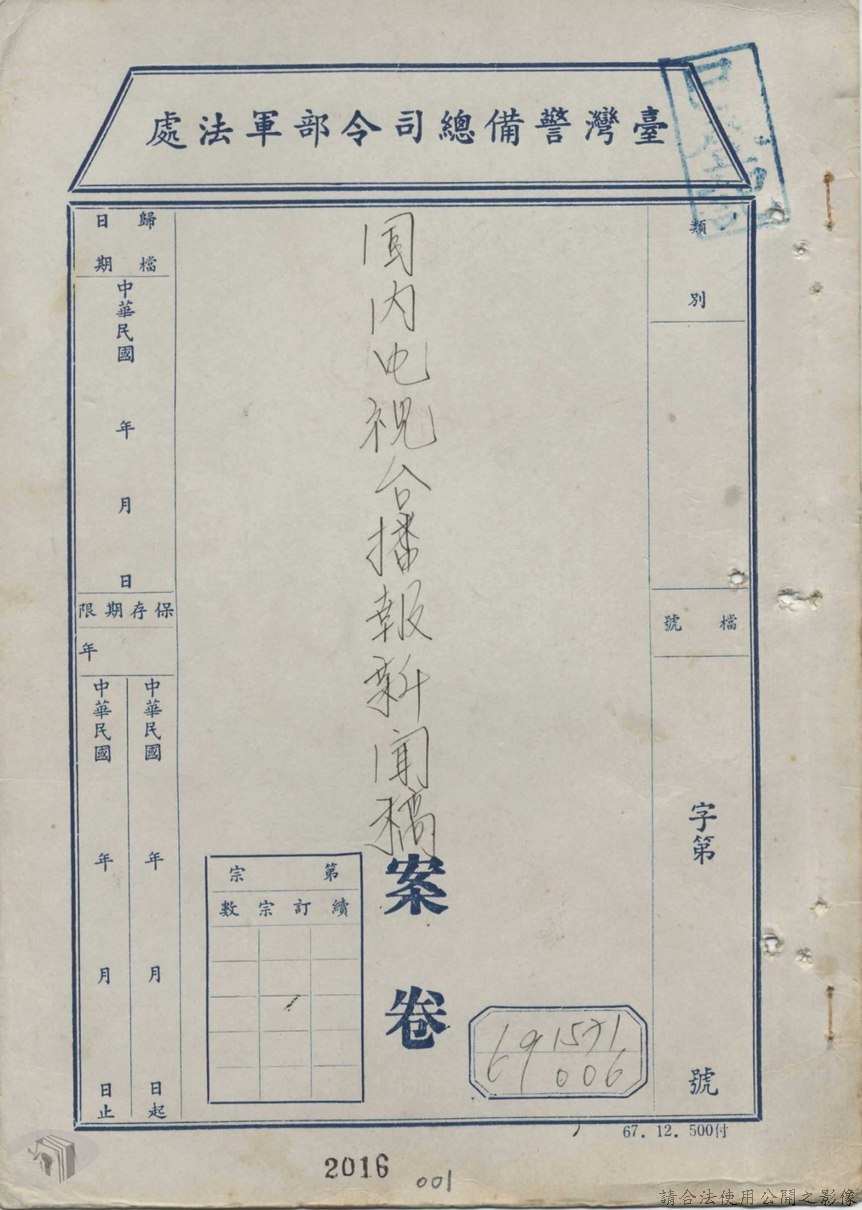 臺灣警備總司令部軍法處
類別
檔號
字第
號
国内电視台播報新聞稿
案卷
691571
006
第宗
續訂宗數
歸檔日期
中華民國
年
月
日
保存期限
年
中華民國
年
月
日起
中華民國
年
月
日止
67.12.500付
2016
001
請合法使用公開之影像